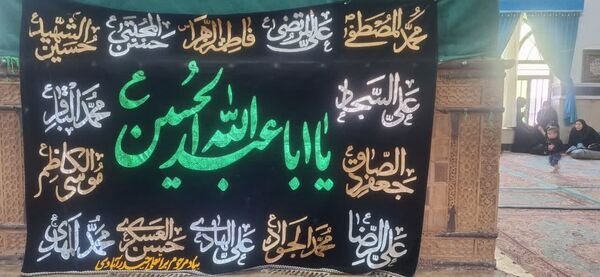 محمد المصطفی ع
علی المرتضی ع
فاطمة الزهرا س
حسن المجتبی ع
حسین الشهید ع
علی السجاد ع
محمد الباقر ع
یا ابا عبدالله الحسین ع
جعفر الصادق ع
موسی الکاظم ع
علی الرضا ع
محمد الجواد ع
علی الهادی ع
حسن العسکری ع
محمد المهدی ع